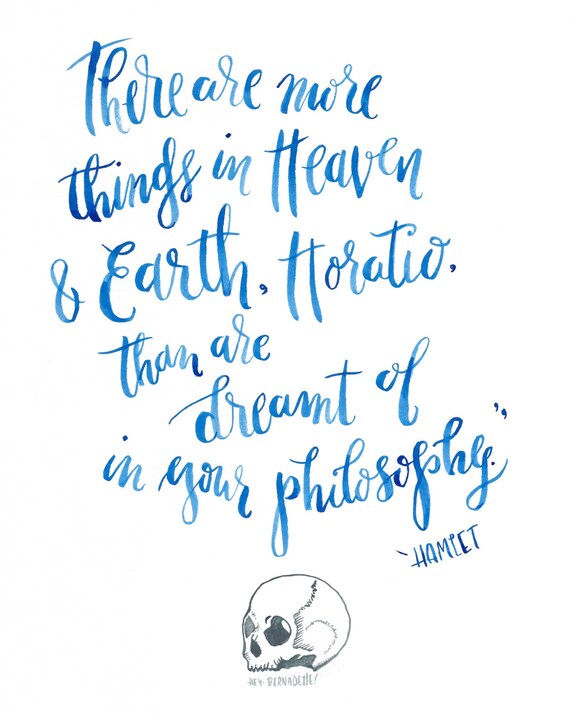 There are more
things in Heaven
& Earth, Horatio,
than are
dreamt of
in your philosophy."
-HAMLET
HEY BERNADETTE!